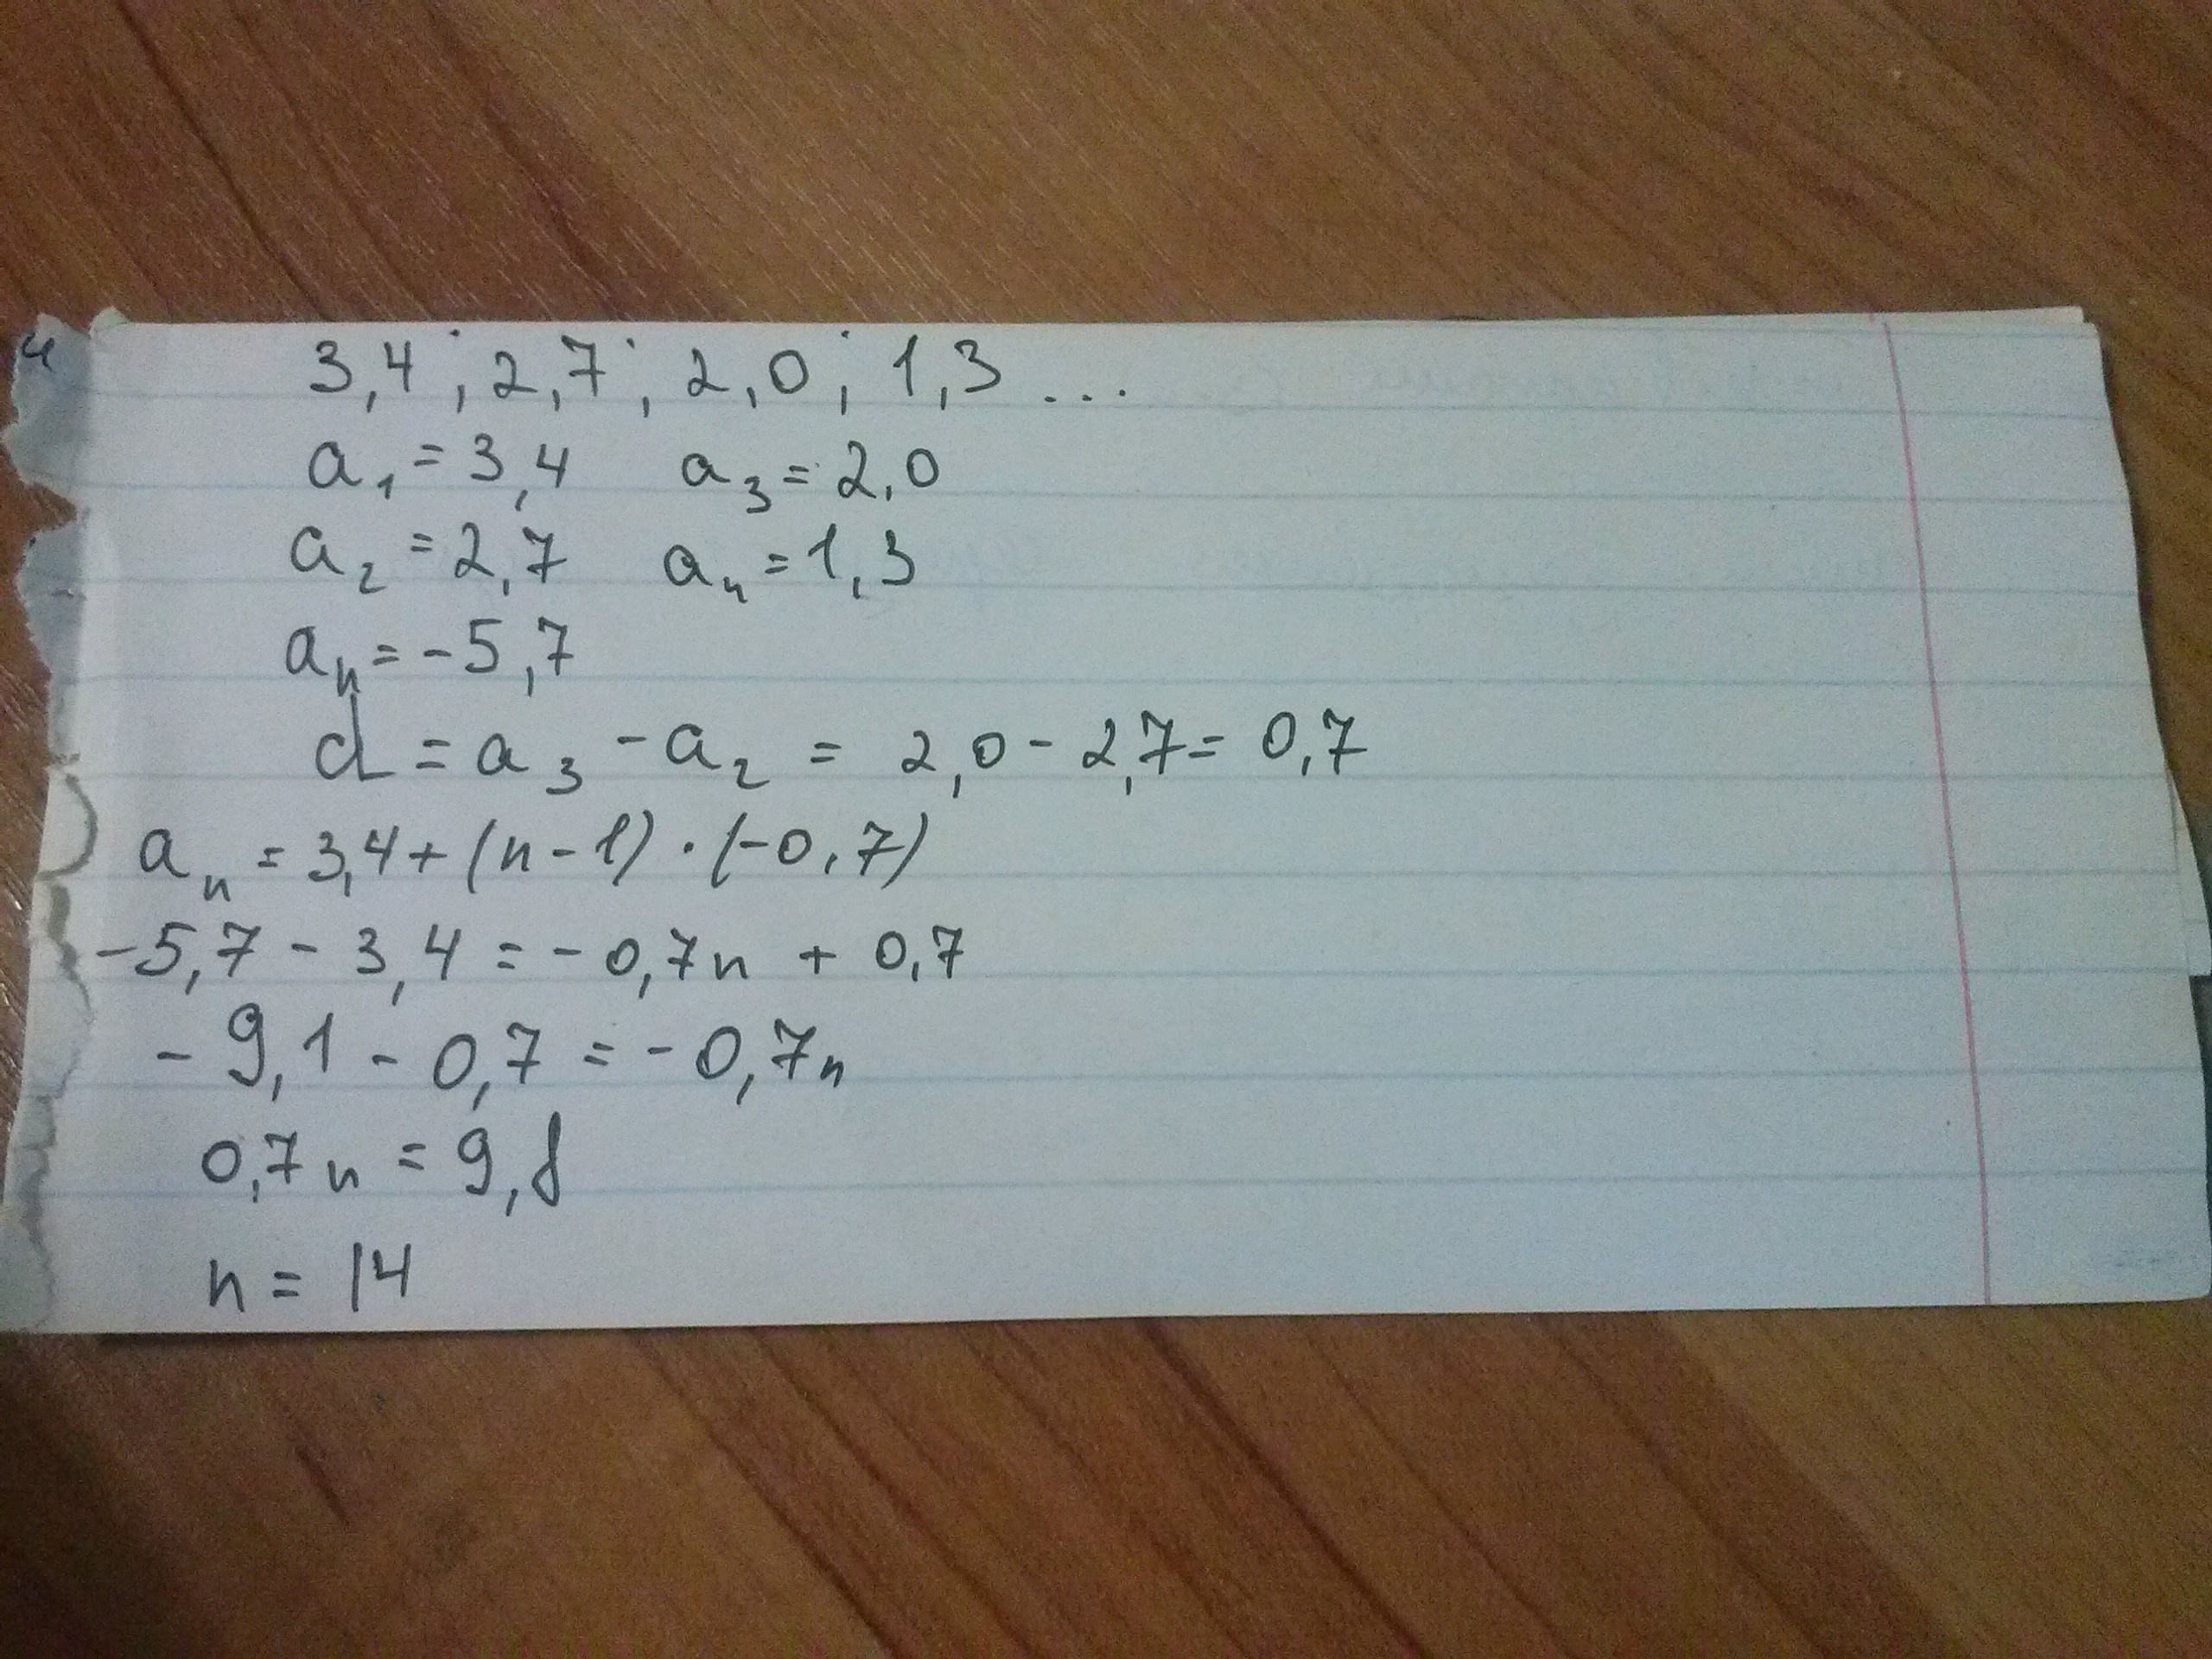 4
3,4; 2,7; 2,0; 1,3 ...
a₁ = 3,4 a₃ = 2,0
a₂ = 2,7 a₄ = 1,3
aₙ = -5,7
d = a₃ - a₂ = 2,0 - 2,7 = 0,7
aₙ = 3,4 + (n - 1) · (-0,7)
-5,7 - 3,4 = -0,7n + 0,7
-9,1 - 0,7 = -0,7n
0,7n = 9,8
n = 14